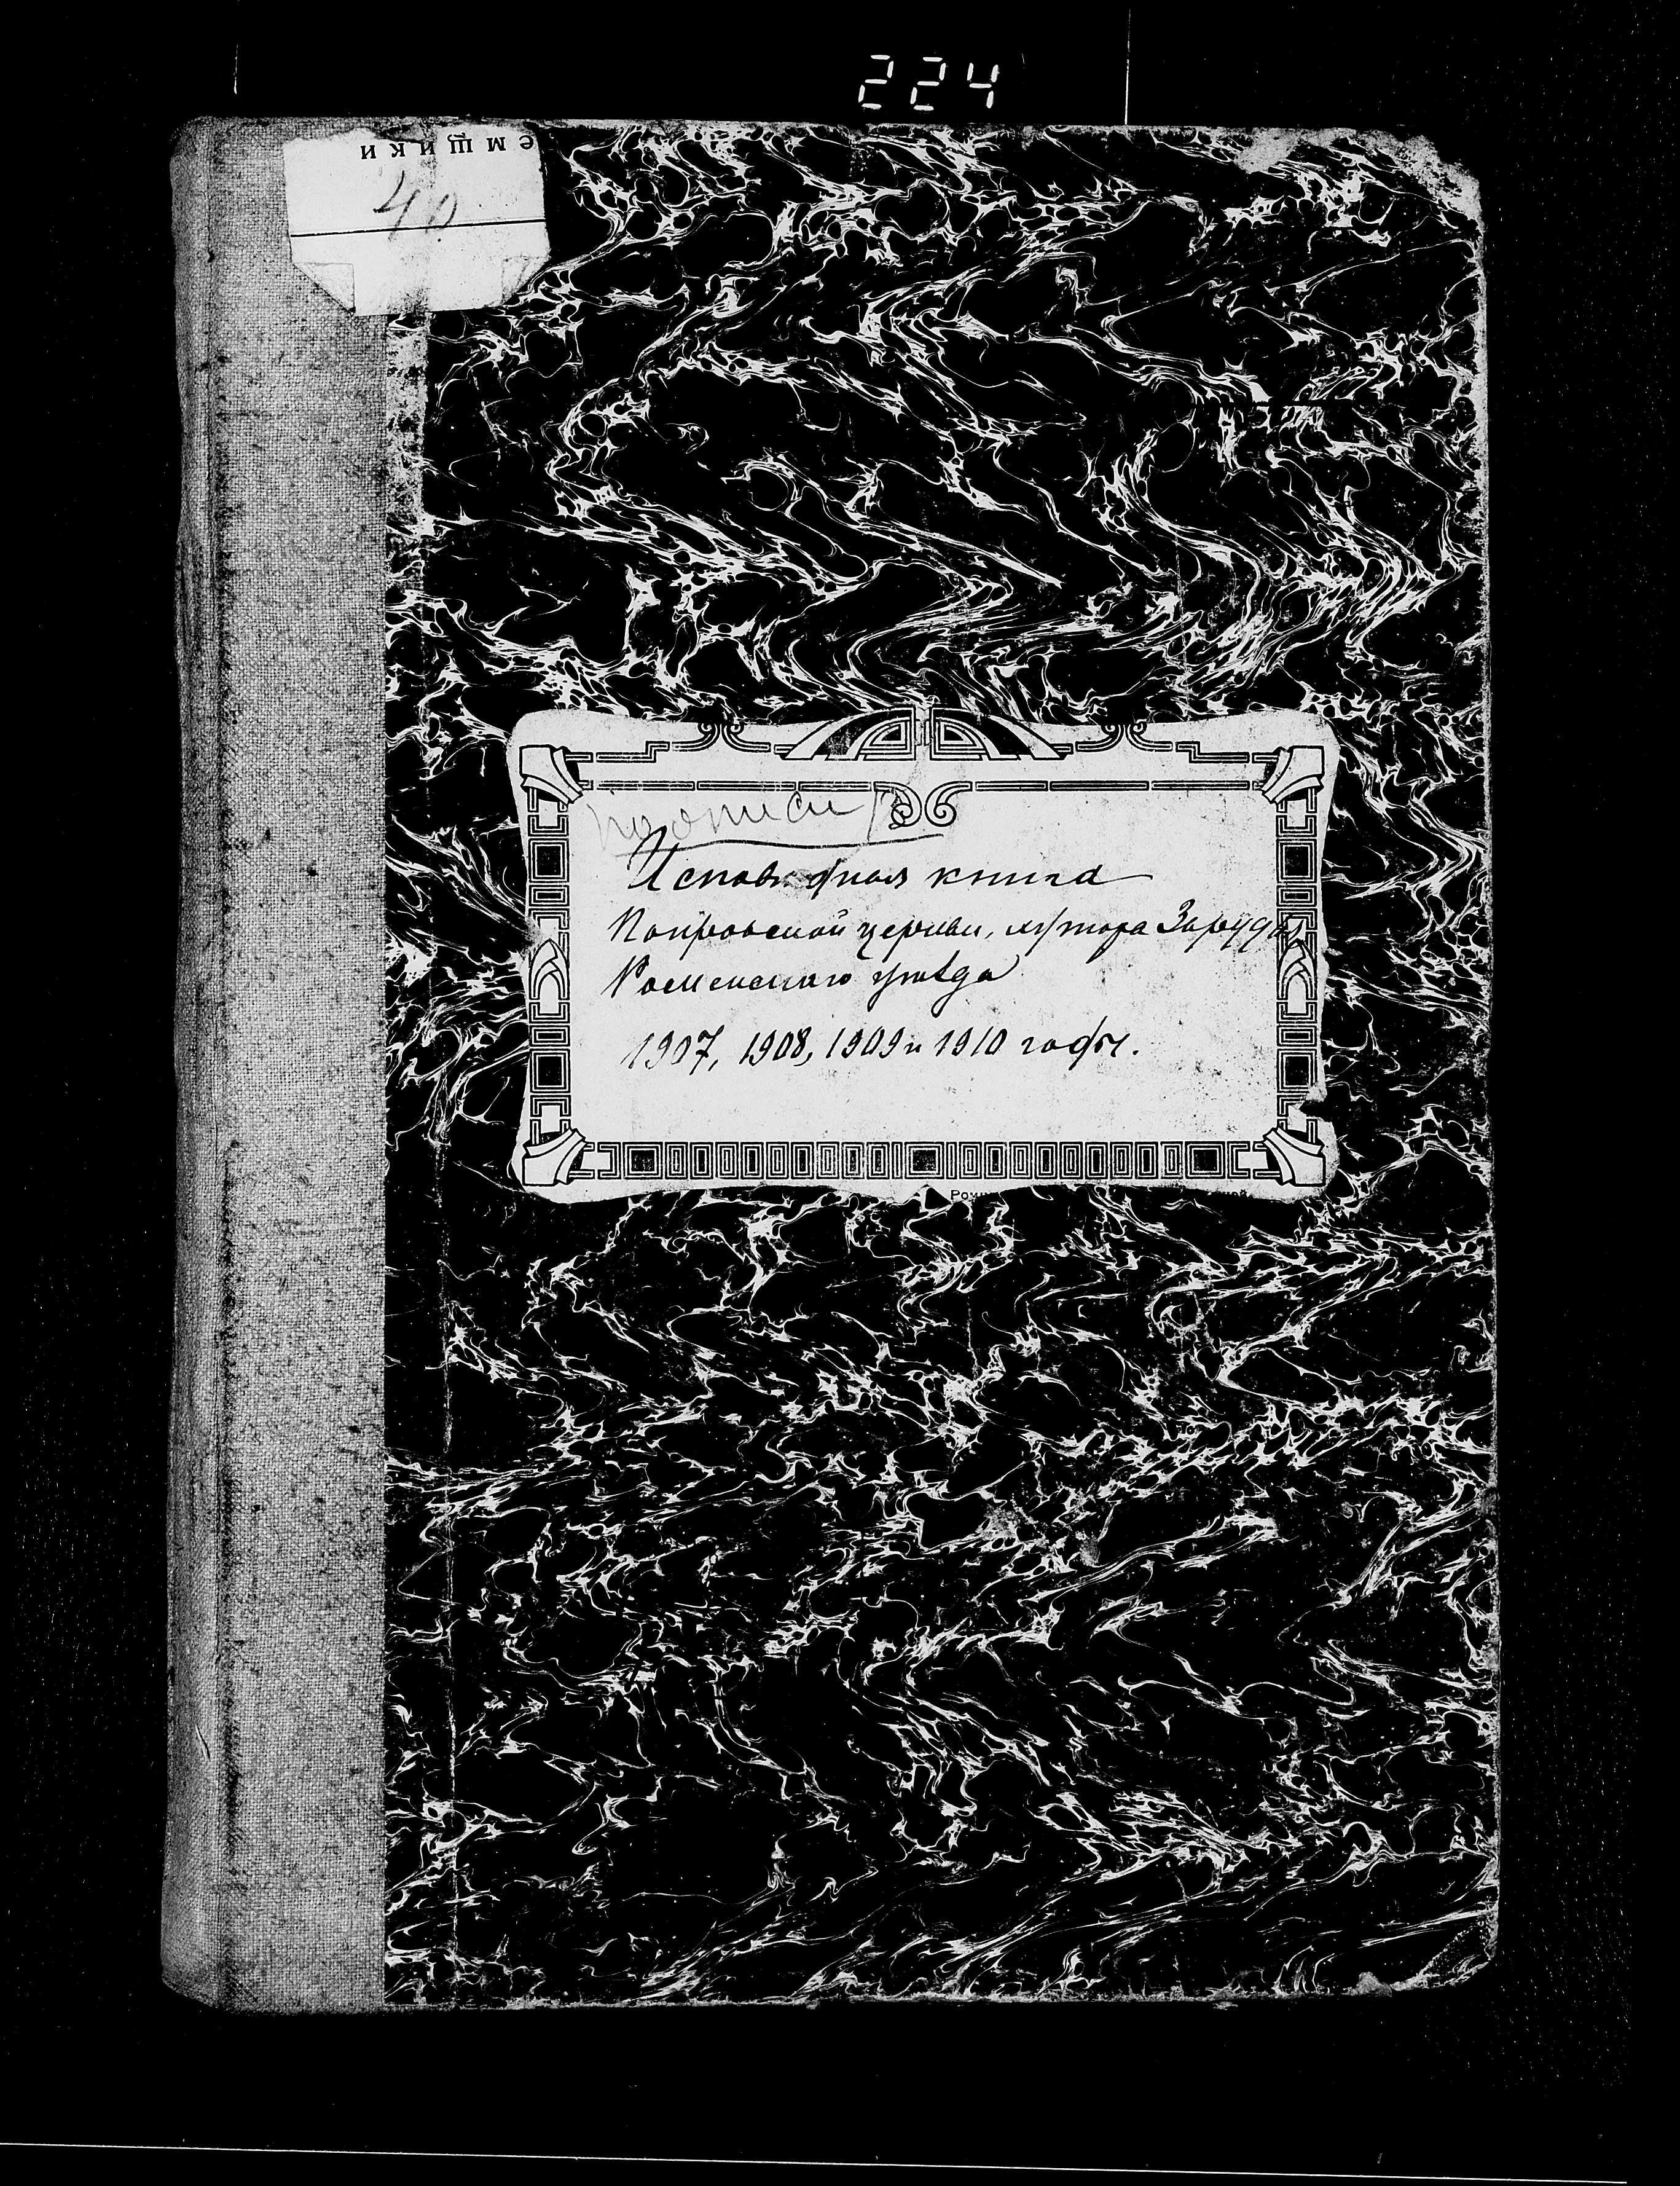 224
емщики
40
по описи
Исповедная книга
Покровской церкви, хутора Заруддя
Роменского уѣзда
1907, 1908, 1909 и 1910 годы.